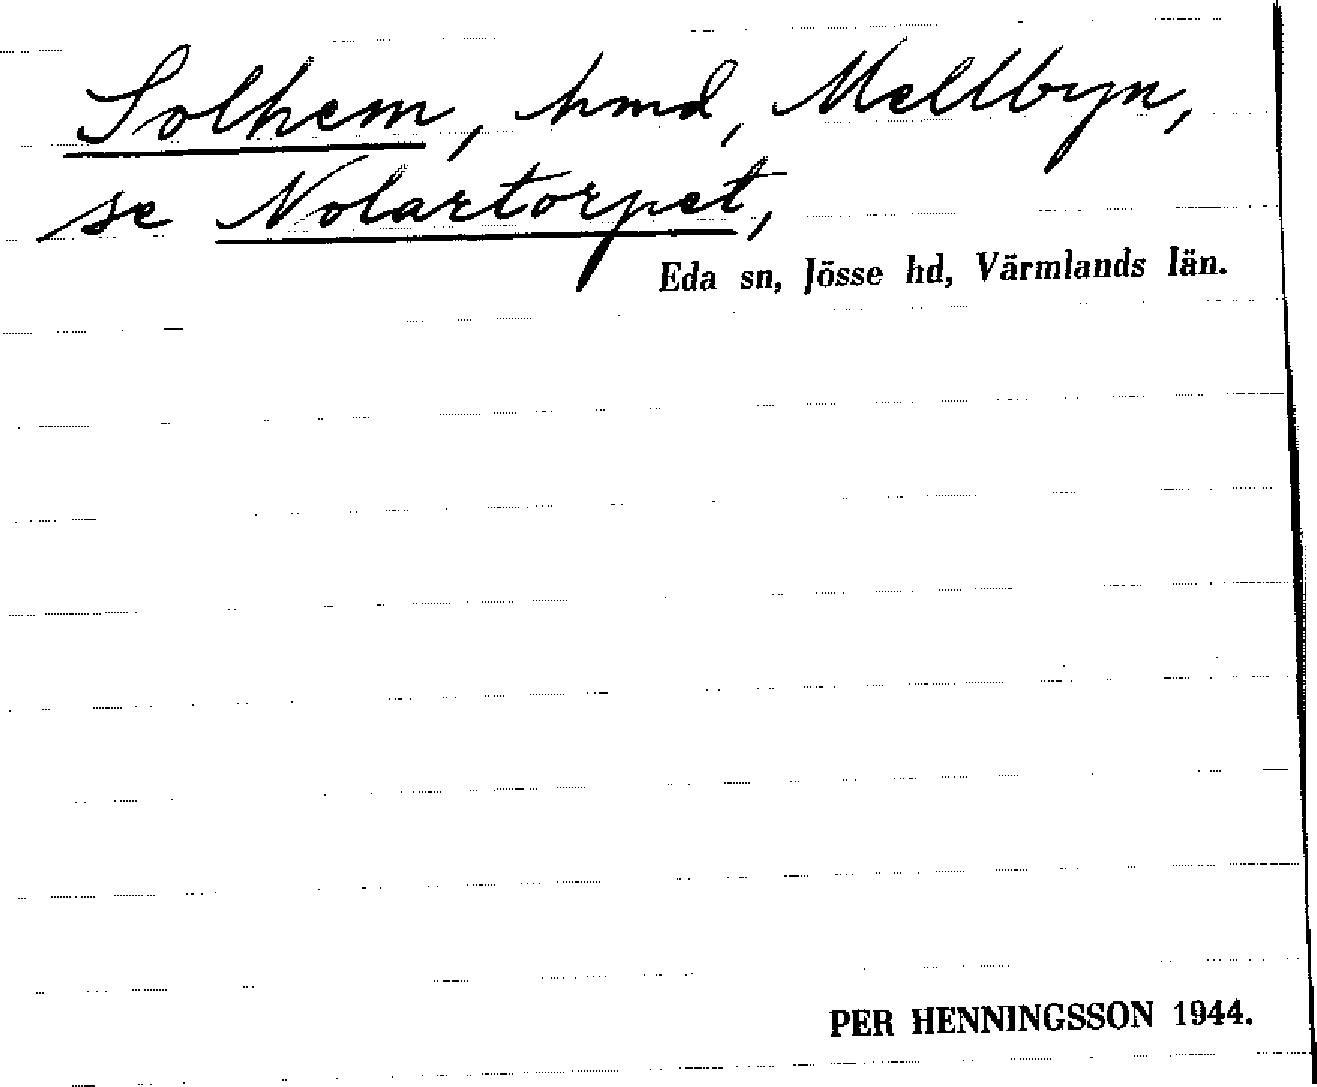 Solhem, hmd, Mellbyn,
se Nolartorpet,
Eda sn, Jösse hd, Värmlands län.
PER HENNINGSSON 1944.